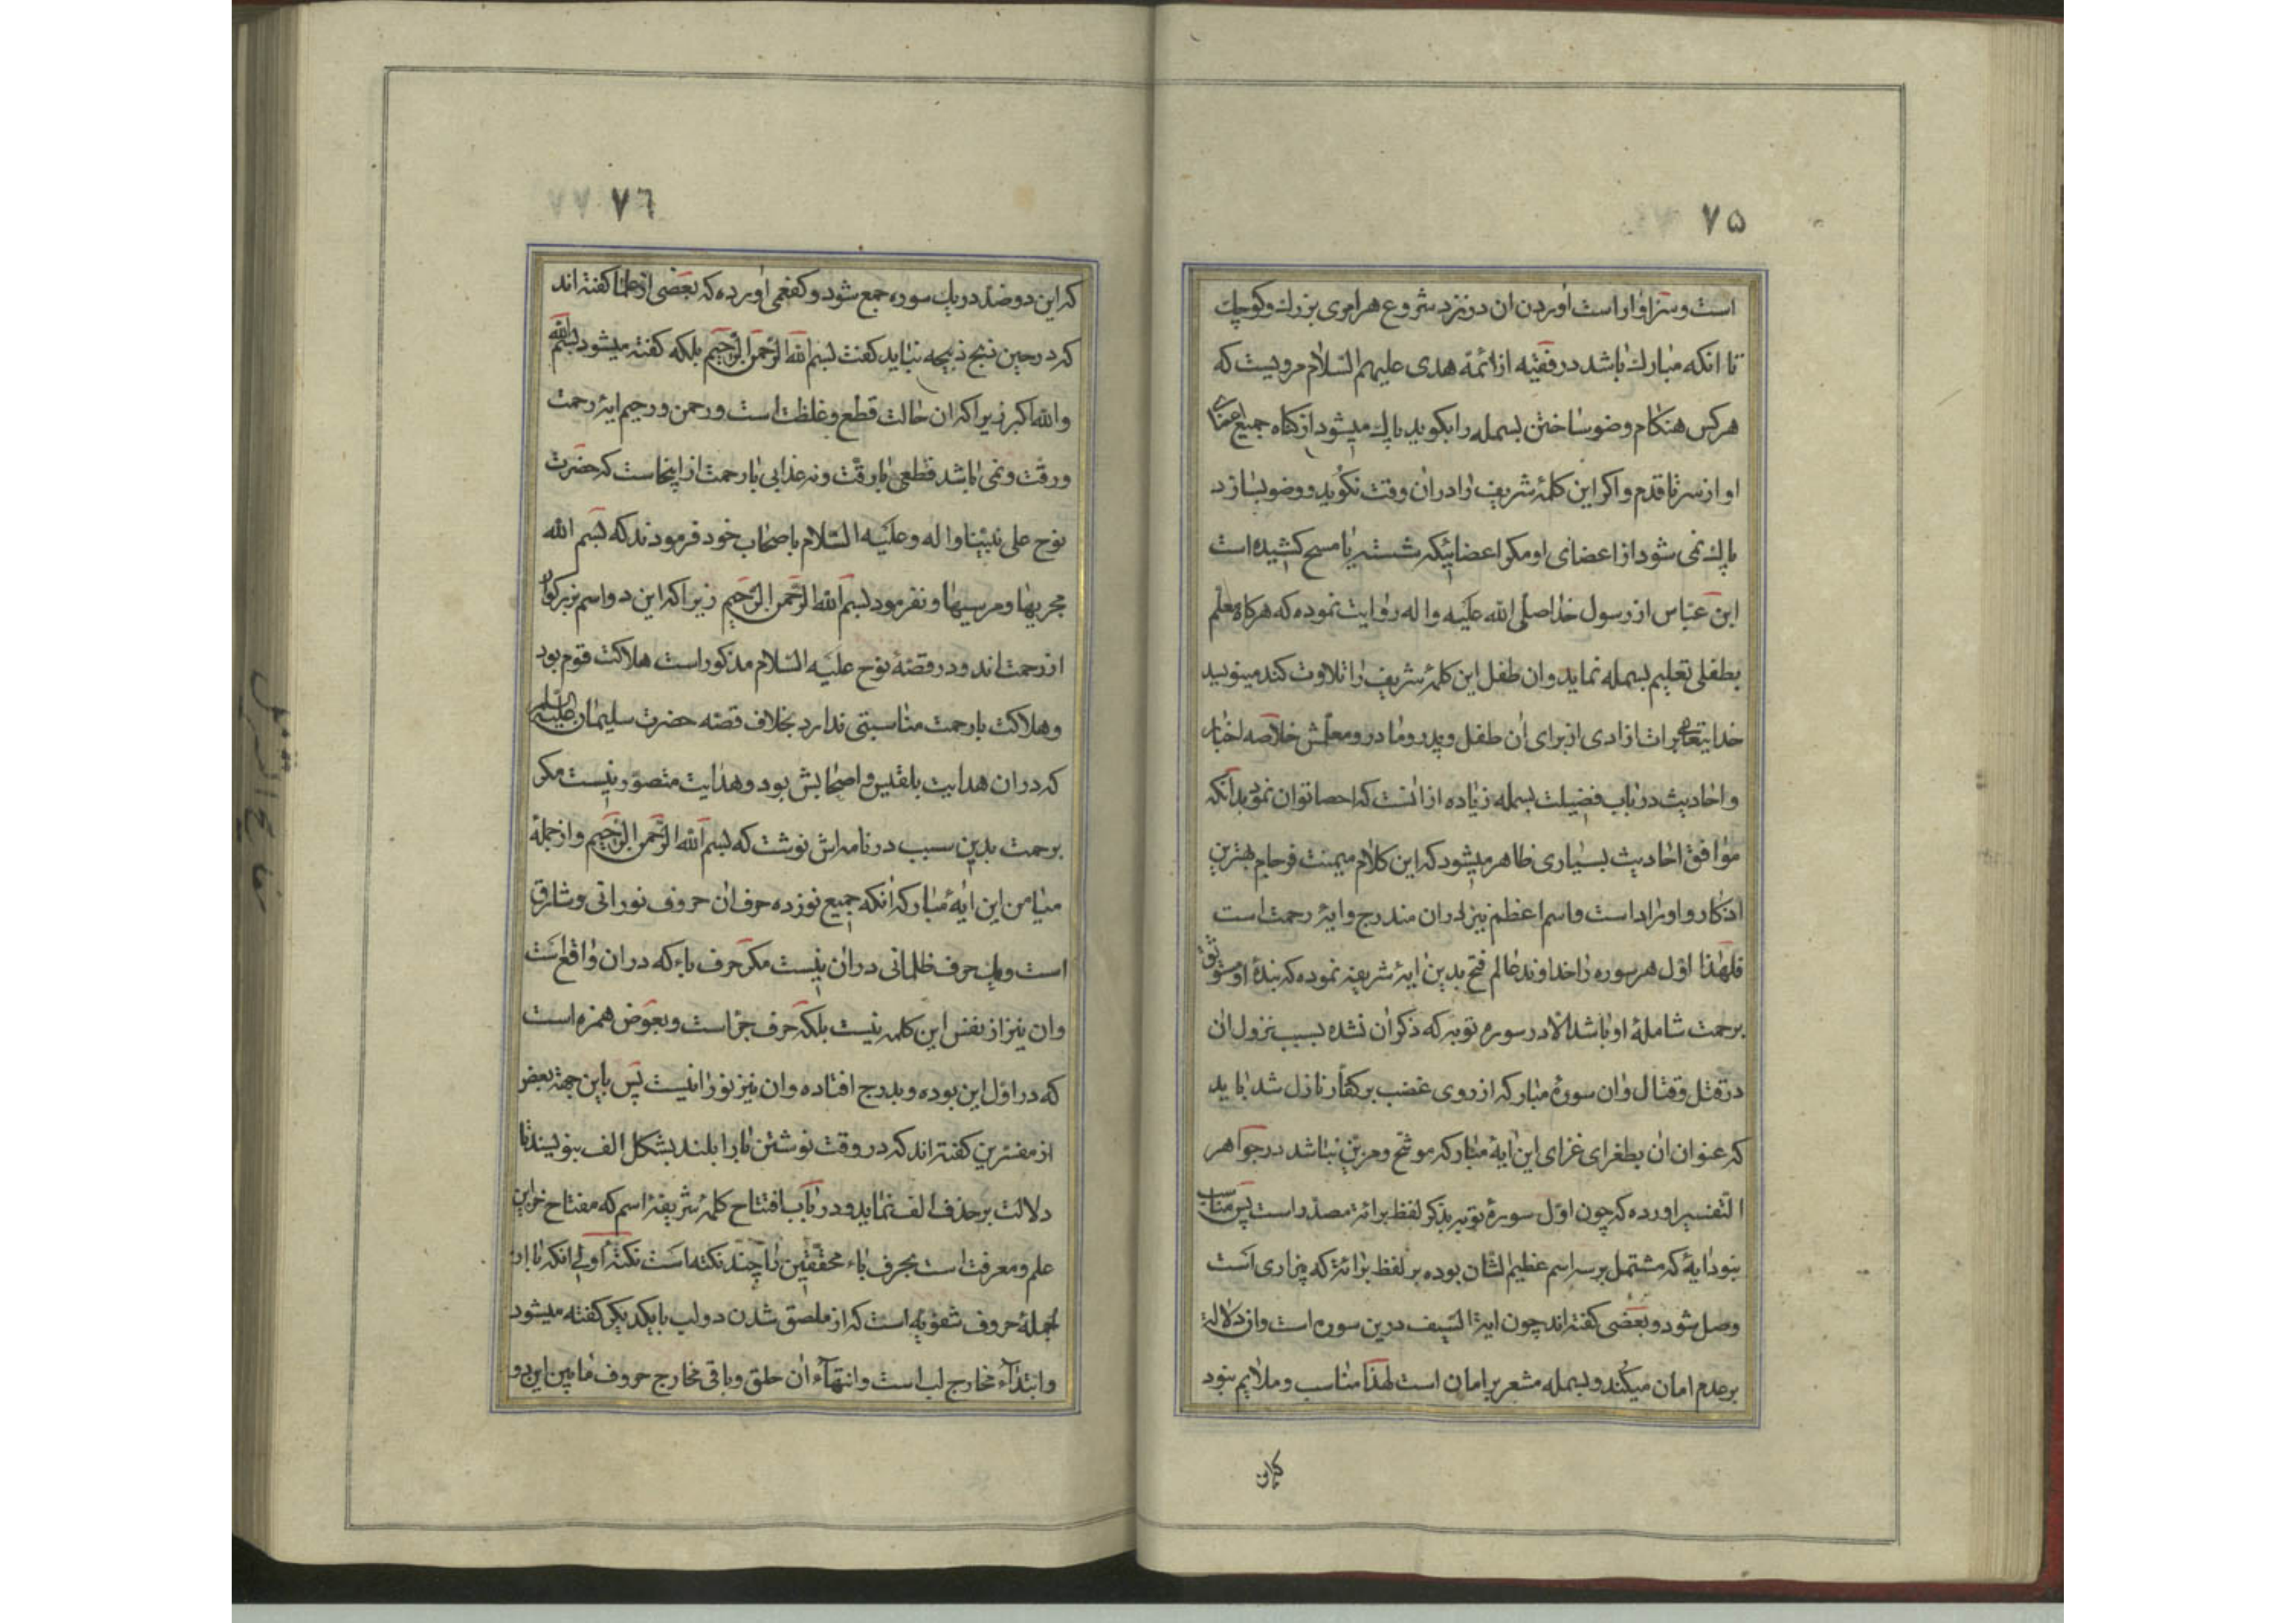 ۷۵
است و سزاوار است اوردن ان در نزد شروع هر امری بزرك و كوچك
تا انكه مبارك باشد در فقیه از ائمة هدی علیهم السلام مرویست كه
هر كس هنكام وضو ساختن بسمله را بكوید پاك میشود از كناه جمیع اعضای
او از سر تا قدم و اكر این كلمهٔ شریف را در ان وقت نكوید و وضو بسازد
پاك نمی شود از اعضای او مكر اعضائیكه شسته یا مسح كشیده است
ابن عباس از رسول خدا صلی الله علیه و اله روایت نموده كه هركاه معلم
بطفلی تعلیم بسمله نماید و ان طفل این كلمهٔ شریف را تلاوت كند مینویسد
خدایتعالی برات ازادی از برای ان طفل و پدر و مادر و معلمش خلاصه اخبار
و احادیث در باب فضیلت بسمله زیاده از انست كه احصا توان نمود بدانكه
موافق احادیث بسیاری ظاهر میشود كه این كلام میمنت فرجام بهترین
اذكار و اوراد است و اسم اعظم نیز در ان مندرج و ایهٔ رحمت است
فلهذا اول هر سوره را خداوند عالم فتح بدین ایهٔ شریفه نموده كه بندهٔ او موثق
برحمت شاملهٔ او باشد الا در سوره توبه كه ذكر ان نشده بسبب نزول ان
در قتل و قتال و ان سورهٔ مباركه از روی غضب بر كفار نازل شد باید
كه عنوان ان بطغرای غرای این ایهٔ مباركه موشح و مزین نباشد در جواهر
التفسیر اورده كه چون اول سورهٔ توبه بذكر لفظ برائة مصدر است پس مناسب
نبود ایهٔ كه مشتمل بر سه اسم عظیم الشان بوده بر لفظ برائة كه بیزاری است
وصل شود و بعضی كفته اند چون ایة السیف درین سوره است و ان دلالة
بر عدم امان میكند و بسمله مشعر بر امان است لهذا مناسب و ملایم نبود
۷٦
كه این دو ضد در یك سوره جمع شود و كفعمی اورده كه بعضی از علما كفته اند
كه در حین ذبح ذبیحه نباید كفت بسم الله الرحمن الرحیم بلكه كفته میشود بسم الله
والله اكبر زیرا كه ان حالت قطع و غلظت است و رحمن و رحیم ایهٔ رحمت
و رقت و نمی باشد قطعی با رقت و نه عذابی با رحمت از اینجاست كه حضرت
نوح علی نبینا و اله و علیه السلام باصحاب خود فرمودند كه بسم الله
مجریها و مرسیها و نفرمود بسم الله الرحمن الرحیم زیرا كه این دو اسم بزركوار
از رحمت اند و در قصهٔ نوح علیه السلام مذكور است هلاكت قوم بود
و هلاكت با رحمت مناسبتی ندارد بخلاف قصه حضرت سلیمان علیه السلام
كه در ان هدایت بلقیس و اصحابش بود و هدایت متصور نیست مكر
برحمت بدین سبب در نامه اش نوشت كه بسم الله الرحمن الرحیم و از جملهٔ
میامن این ایهٔ مباركه انكه جمیع نوزده حرف ان حروف نورانی و شارق
است و یك حرف ظلمانی در ان نیست مكر حرف باء كه در ان واقع است
و ان نیز از نفس این كلمه نیست بلكه حرف جر است و بعوض همزه است
كه در اول این بوده و بدرج افتاده و ان نیز نورانیست پس باین جهة بعض
از مفسرین كفته اند كه در وقت نوشتن با را بلند بشكل الف بنویسند تا
دلالت بر حذف الف نماید و در باب افتتاح كلمهٔ شریفهٔ اسم كه مفتاح خزاین
علم و معرفت است بحرف باء محققین را چند نكته است نكتهٔ اولی انكه با از
جملهٔ حروف شفویه است كه از ملصق شدن دو لب بایكدیكر كفته میشود
و ابتداء مخارج لب است و انتهاء ان حلق و باقی مخارج حروف ما بین این دو